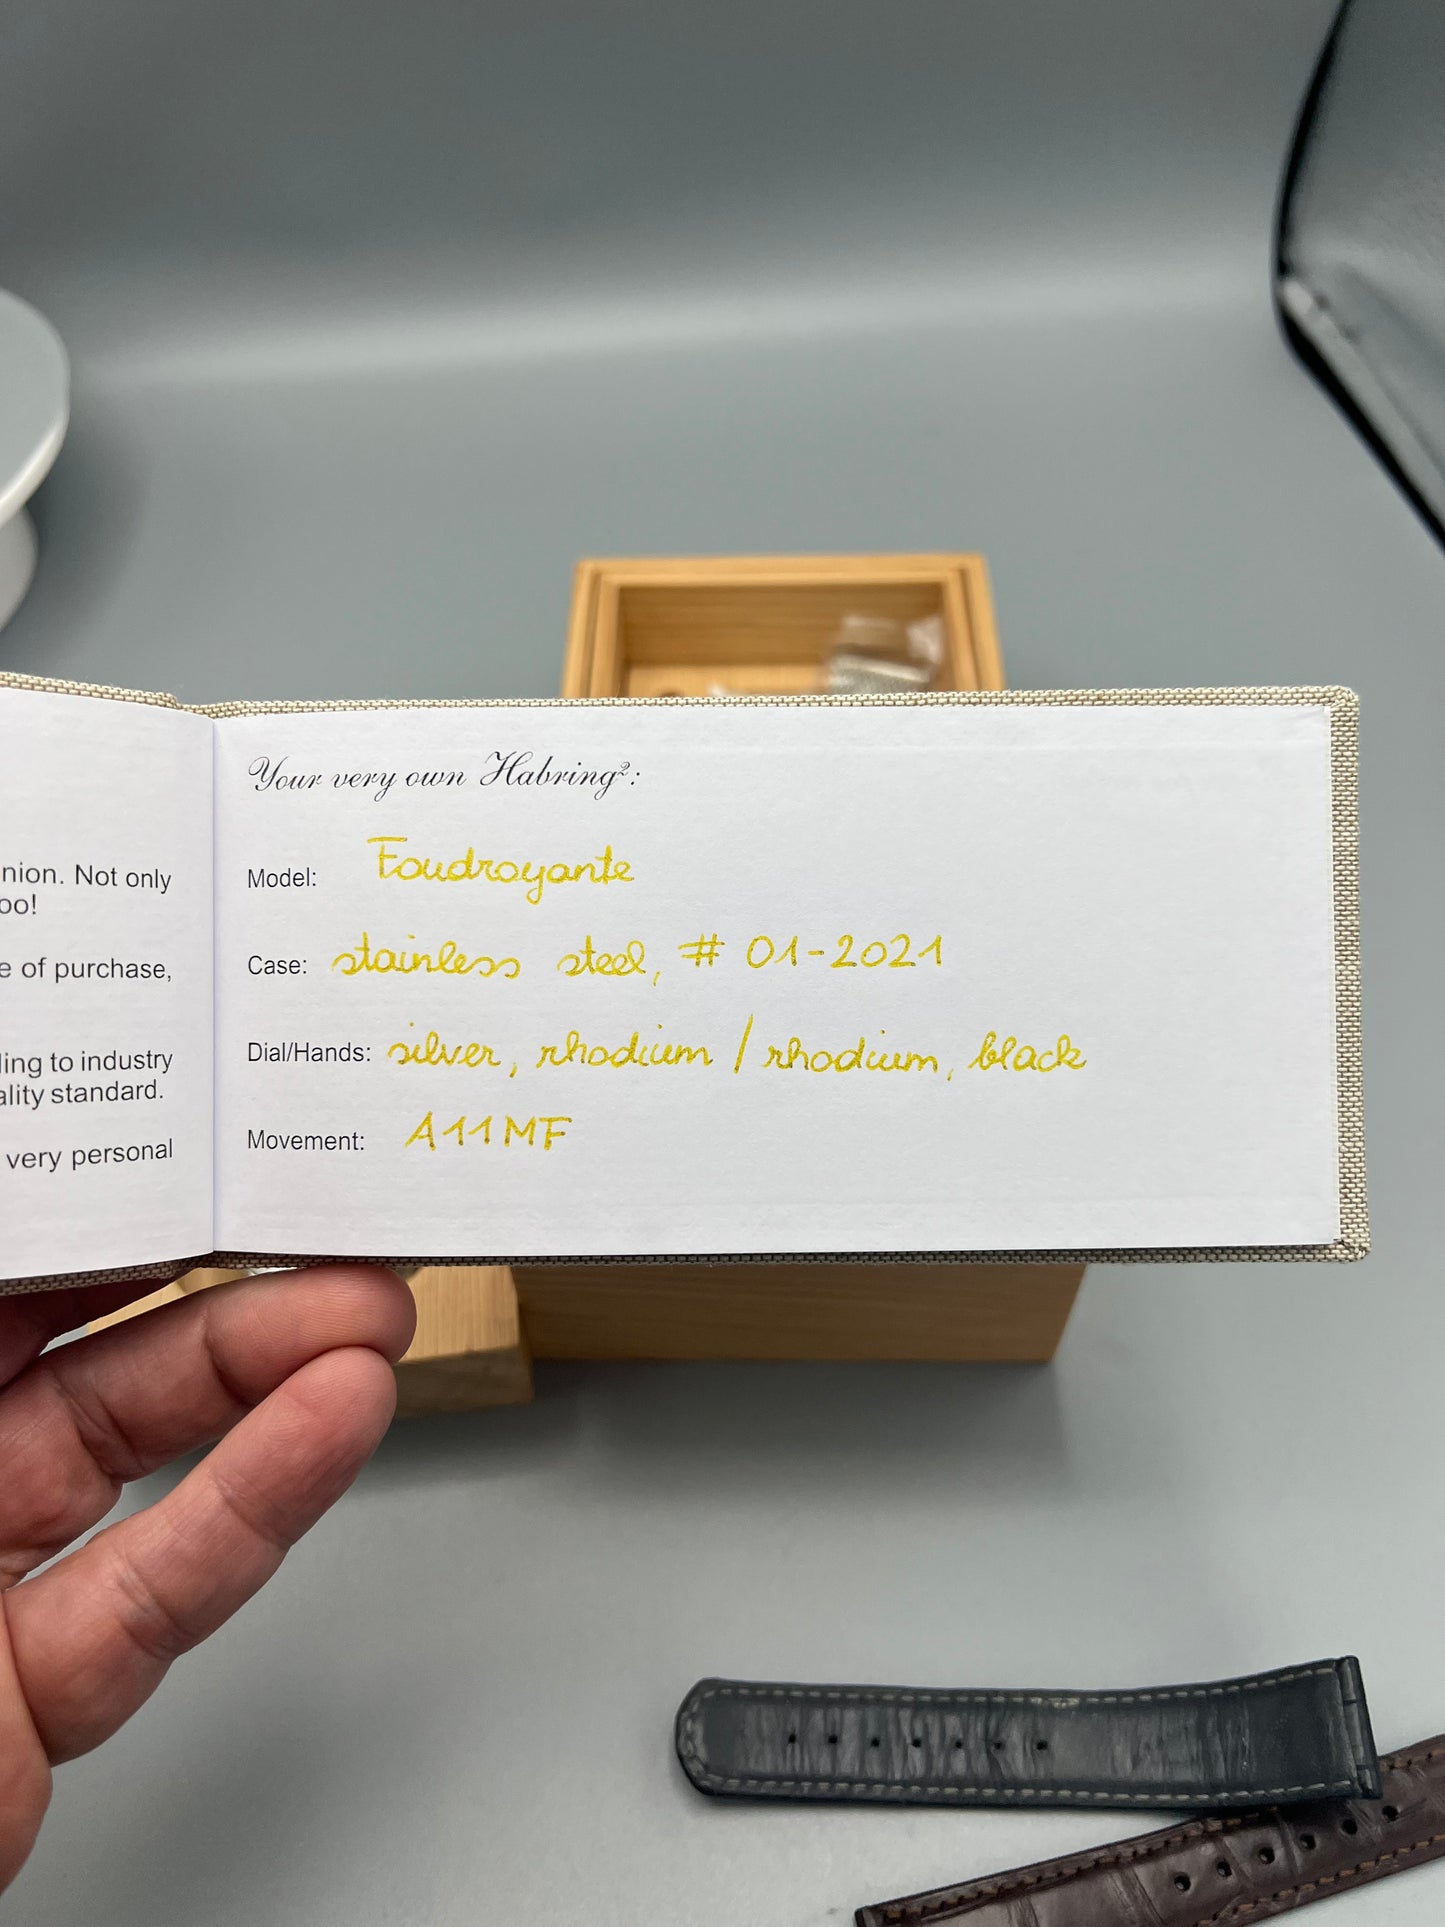 nion. Not only
oo!
e of purchase,
ling to industry
ality standard.
very personal
Your very own Habring²:
Model: Foudroyante
Case: stainless steel, # 01-2021
Dial/Hands: silver, rhodium / rhodium, black
Movement: A11MF